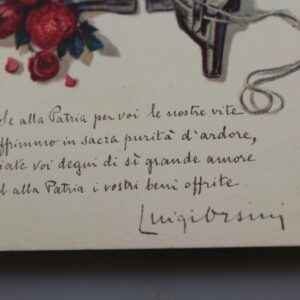 Se alla Patria per voi le nostre vite
offrimmo in sacra purità d'ardore,
siate voi degni di sè grande amore
ed alla Patria i vostri beni offrite.
Luigi Orsini